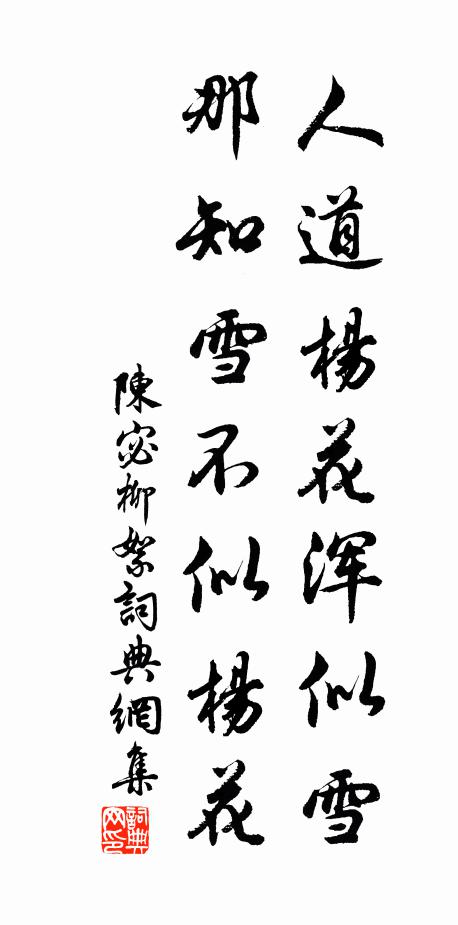 人道楊花浑似雪
那知雪不似楊花
陳宓柳絮詞典網集
詞典
网印